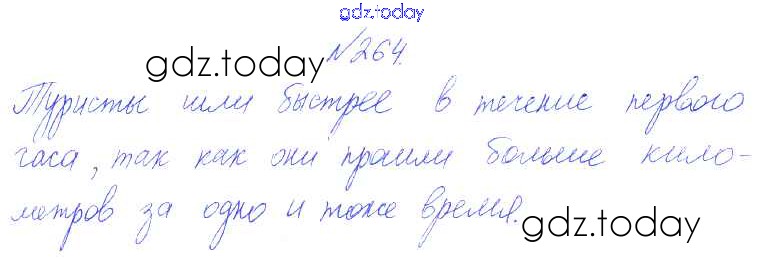 gdz.today
№264.
gdz.today
Туристы шли быстрее в течение первого
часа, так как они прошли больше кило-
метров за одно и тоже время.
gdz.today